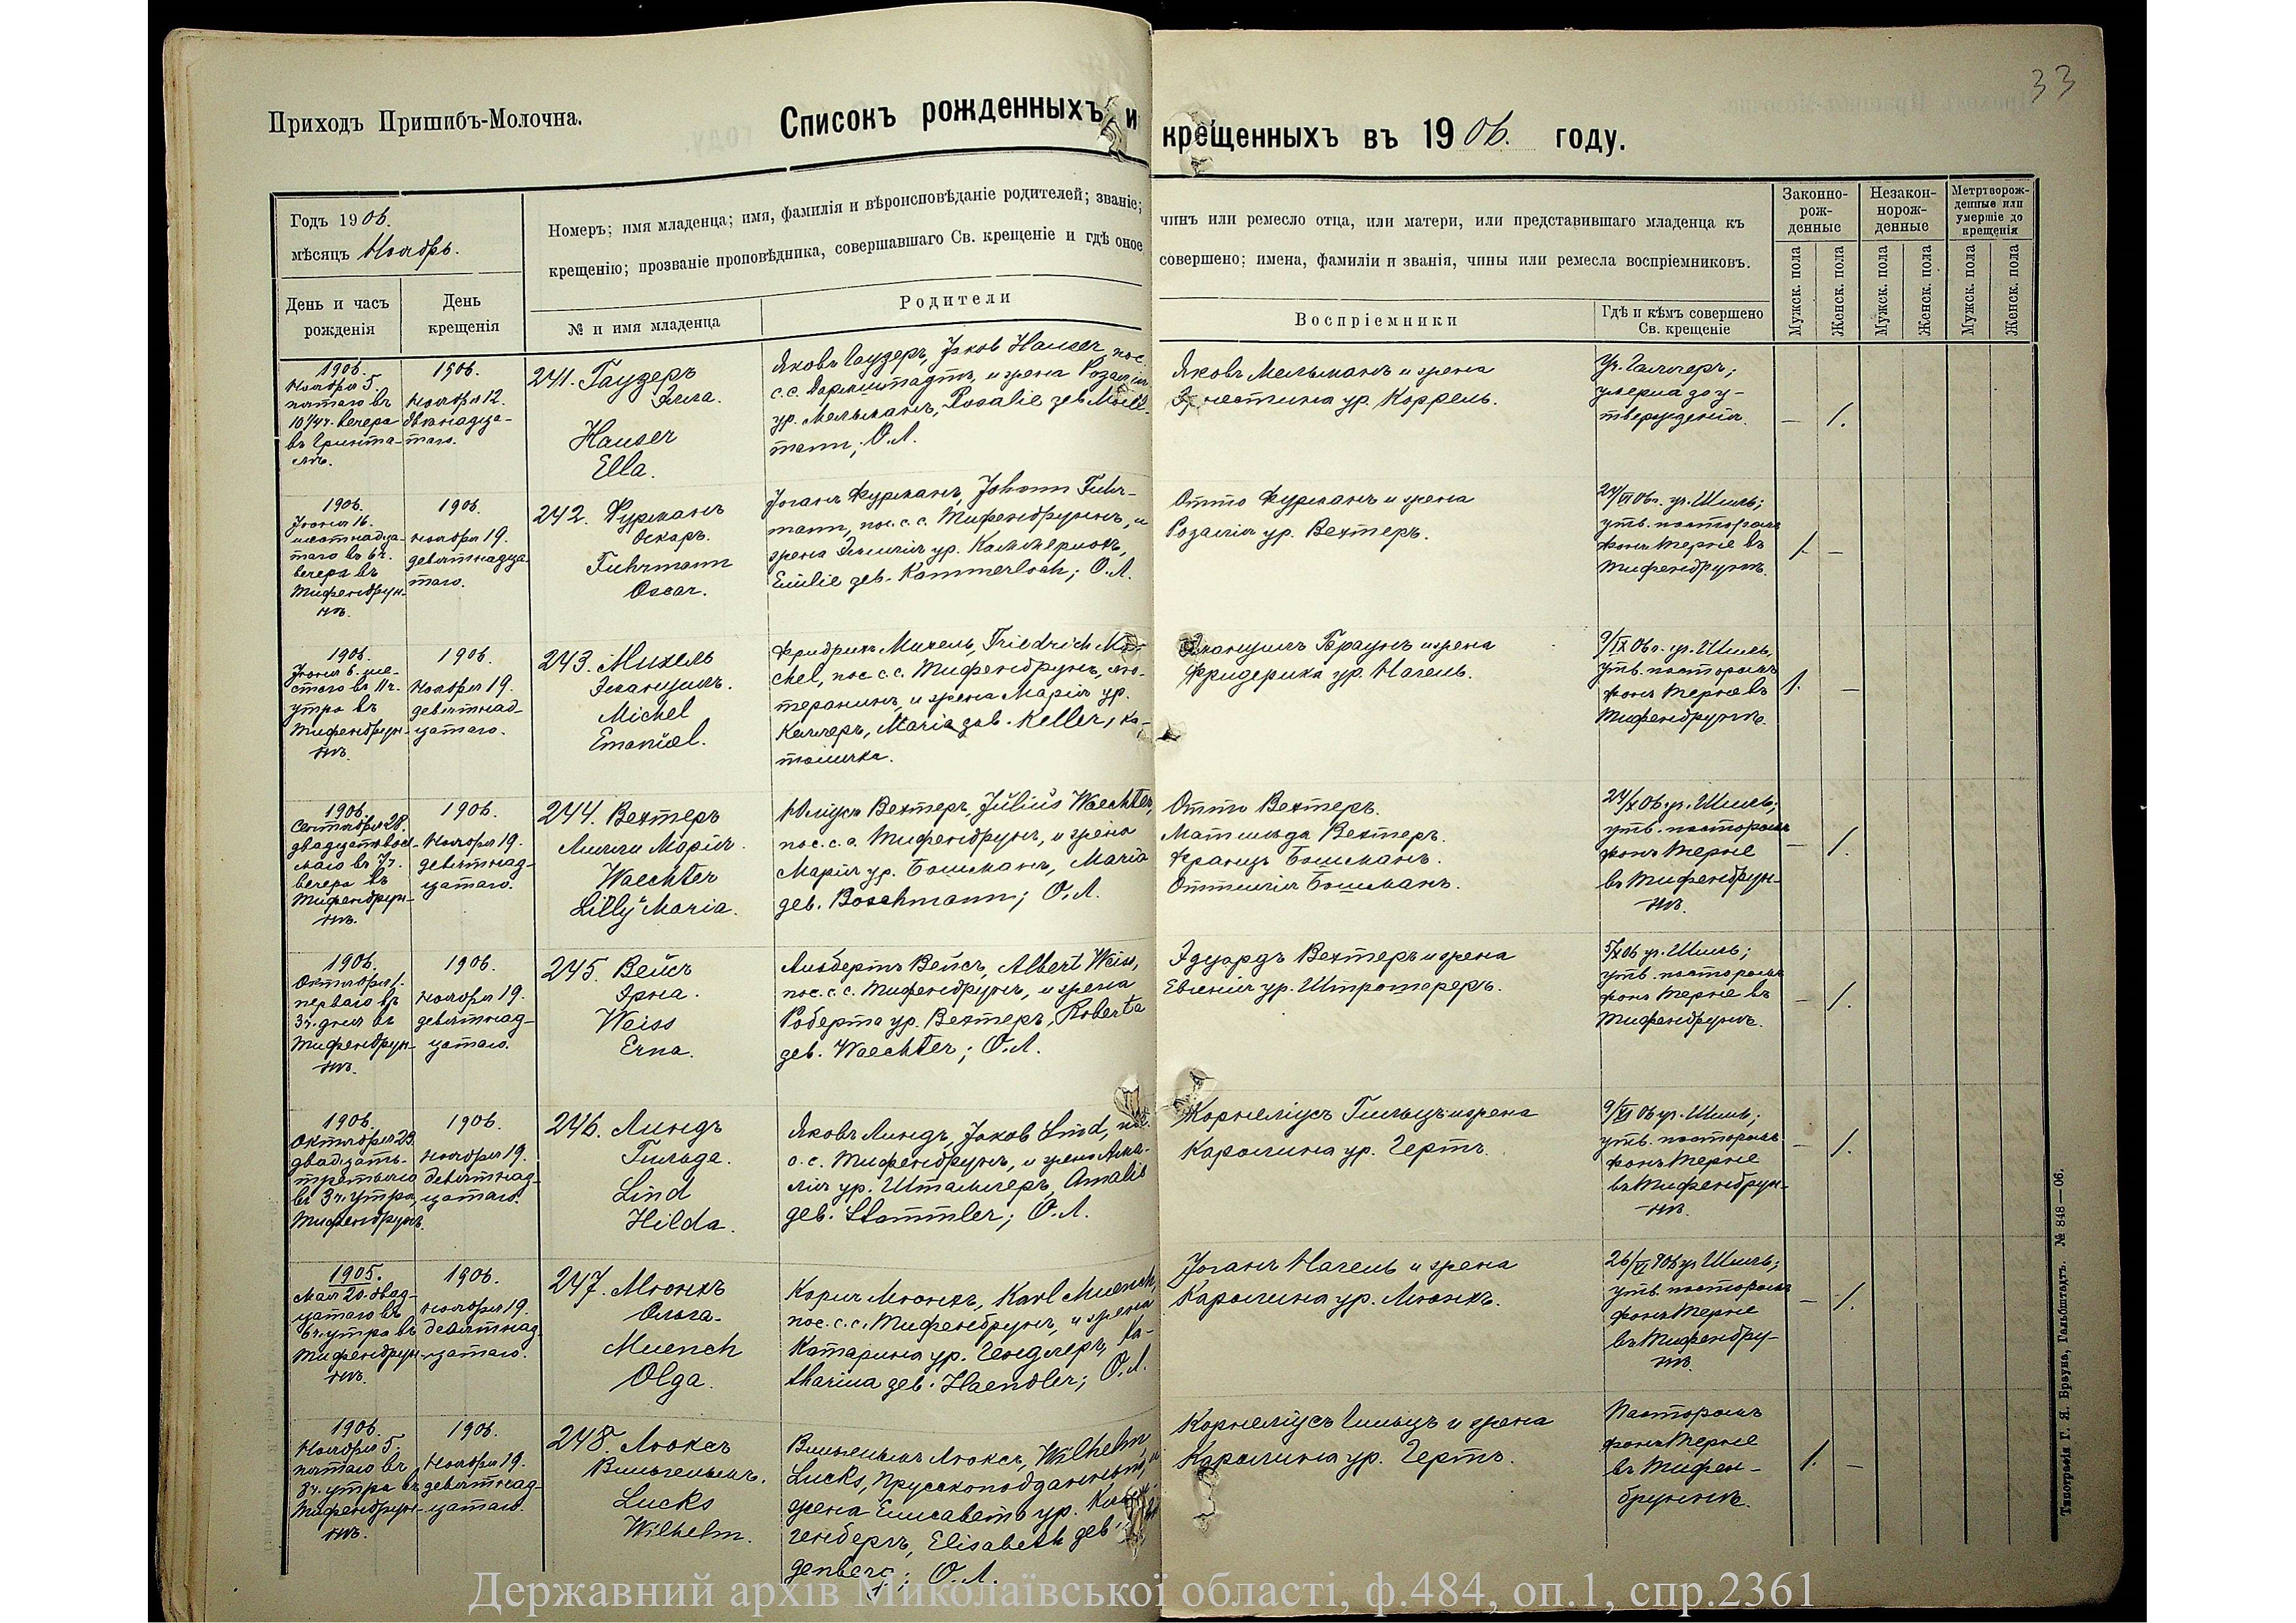 33
Приходъ Пришибъ-Молочна.
Списокъ рожденныхъ и крещенныхъ въ 1906. году.
Годъ 1906.
мѣсяцъ Ноябрь.
Номеръ; имя младенца; имя, фамилія и вѣроисповѣданіе родителей; званіе; чинъ или ремесло отца, или матери, или представившаго младенца къ
крещенію; прозваніе проповѣдника, совершавшаго Св. крещеніе и гдѣ оное совершено; имена, фамиліи и званія, чины или ремесла воспріемниковъ.
Законно-
рож-
денные
Незакон-
норож-
денные
Метртворож-
денные или
умершіе до
крещенія
День и часъ
рожденія
День
крещенія
№ и имя младенца
Родители
Воспріемники
Гдѣ и кѣмъ совершено
Св. крещеніе
Мужск. пола
Женск. пола
Мужск. пола
Женск. пола
Мужск. пола
Женск. пола
1906.
Ноября 5.
пятаго въ
10¼ч. вечера
въ Гринта-
лѣ.
1906.
Ноября 12.
двѣнадца-
таго.
241. Гаузеръ
Элла.
Hauser
Ella.
Яковъ Гаузеръ, Jakob Hauser, пос.
с.с. Дармштадтъ, и жена Розалія
ур. Мельманъ, Rosalie geb. Moell-
mann; О.Л.
Яковъ Мельманъ и жена
Эрнестина ур. Коррель.
Уч. Галлеръ;
умерла до у-
твержденія.
— 1.
1906.
Іюня 16.
шестнадца-
таго въ 6ч.
вечера въ
Тифенбрун-
нѣ.
1906.
Ноября 19.
девятнадца-
таго.
242. Фурманъ
Оскаръ.
Fuhrmann
Oscar.
Іоганъ Фурманъ, Johann Fuhr-
mann, пос. с. с. Тифенбруннъ, и
жена Эмилія ур. Каммерлохъ,
Emilie geb. Kammerloch; О.Л.
Отто Фурманъ и жена
Розалія ур. Вехтеръ.
уч. Шиль;
утв. пасторомъ
фонъ Терне въ
Тифенбруннѣ.
1. —
1906.
Іюня 6. ше-
стаго въ 11ч.
утра въ
Тифенбрун-
нѣ.
1906.
Ноября 19.
девятнад-
цатаго.
243. Михель
Эмануилъ.
Michel
Emanuel.
Фридрихъ Михель, Friedrich Mi-
chel, пос. с.с. Тифенбрунъ, лю-
теранинъ, и жена Марія ур.
Келлеръ, Maria geb. Keller, ка-
толичка.
Эмануилъ Браунъ и жена
Фридерика ур. Нагель.
9/IX 06г. уч. Шиль,
утв. пасторомъ
фонъ Терне въ
Тифенбруннѣ.
1. —
1906.
Сентября 28.
двадцать вось-
маго въ 7ч.
вечера въ
Тифенбрун-
нѣ.
1906.
Ноября 19.
девятнад-
цатаго.
244. Вехтеръ
Лилли Марія.
Waechter
Lilly Maria.
Юліусъ Вехтеръ, Julius Waechter,
пос. с. с. Тифенбрунъ, и жена
Марія ур. Бошманъ, Maria
geb. Boschmann; О.Л.
Отто Вехтеръ.
Матильда Вехтеръ.
Францъ Бошманъ.
Оттилія Бошманъ.
24/X 06 уч. Шиль;
утв. пасторомъ
фонъ Терне
въ Тифенбрун-
нѣ.
— 1.
1906.
Октября 1.
перваго въ
3ч. дня въ
Тифенбрун-
нѣ.
1906.
Ноября 19.
девятнад-
цатаго.
245. Вейсъ
Эрна.
Weiss
Erna.
Альбертъ Вейсъ, Albert Weiss,
пос. с. с. Тифенбрунъ, и жена
Роберта ур. Вехтеръ, Roberta
geb. Waechter; О.Л.
Эдуардъ Вехтеръ и жена
Евгенія ур. Штротереръ.
уч. Шиль;
утв. пасторомъ
фонъ Терне въ
Тифенбруннѣ.
— 1.
1906.
Октября 23.
двадцать-
третьяго
въ 3ч. утра,
Тифенбрунъ.
1906.
Ноября 19.
девятнад-
цатаго.
246. Линдъ
Гильда.
Lind
Hilda.
Яковъ Линдъ, Jakob Lind, пос.
с. с. Тифенбрунъ, и жена Ама-
лія ур. Штаммлеръ, Amalie
geb. Stammler; О.Л.
Корнеліусъ Гильцъ и жена
Каролина ур. Гертъ.
9/XI 06 уч. Шиль;
утв. пасторомъ
фонъ Терне
въ Тифенбрун-
нѣ.
— 1.
1905.
Мая 20. двад-
цатаго въ
6ч. утра въ
Тифенбрун-
нѣ.
1906.
Ноября 19.
девятнад-
цатаго.
247. Мюнхъ
Ольга.
Muench
Olga.
Карлъ Мюнхъ, Karl Muench,
пос. с. с. Тифенбрунъ, и жена
Катарина ур. Гендлеръ, Ka-
tharina geb. Haendler; О.Л.
Іоганъ Нагель и жена
Каролина ур. Мюнхъ.
уч. Шиль;
утв. пасторомъ
фонъ Терне
въ Тифенбру-
нѣ.
— 1.
1906.
Ноября 5.
пятаго въ
8ч. утра въ
Тифенбрун-
нѣ.
1906.
Ноября 19.
девятнад-
цатаго.
248. Люксъ
Вильгельмъ.
Lucks
Wilhelm.
Вильгельмъ Люксъ, Wilhelm
Lucks, Прусскоподданный, и
жена Елисавета ур.
генбергъ, Elisabeth geb.
genberg; О.Л.
Корнеліусъ Гильцъ и жена
Каролина ур. Гертъ.
Пасторомъ
фонъ Терне
въ Тифен-
бруннѣ.
1. —
Типографія Г. Я. Брауна, Гальбштадтъ. № 848—06.
Державний архів Миколаївської області, ф.484, оп.1, спр.2361